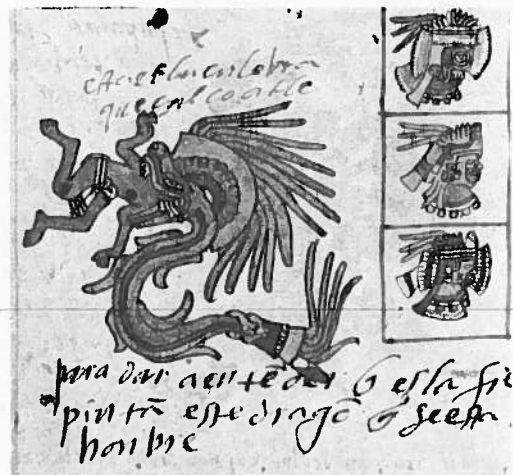 esta es la culebra
queçalcoatle
para dar a entẽder q̃ es la fie
pintã este dragõ q̃ se esta
honbre